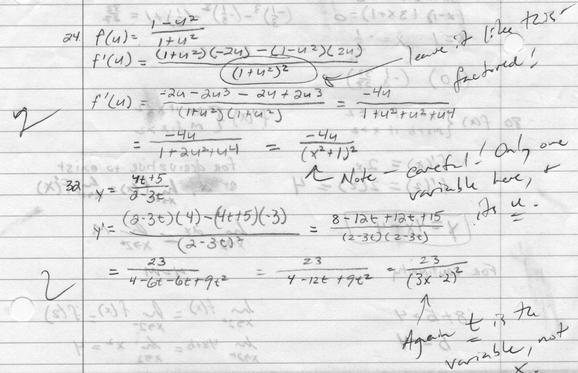 24. f(u) = 1-u² / 1+u²
f'(u) = (1+u²)(-2u) - (1-u²)(2u) / (1+u²)²
leave it like this- factored!
f'(u) = -2u - 2u3 - 2u + 2u3 / (1+u²)(1+u²) = -4u / 1+u²+u²+u4
2
= -4u / 1+2u²+u4 = -4u / (x²+1)²
Note - careful! Only one
variable here, +
its u.
32. y = 4t+5 / 2-3t
y' = (2-3t)(4) - (4t+5)(-3) / (2-3t)² = 8-12t+12t+15 / (2-3t)(2-3t)
2
= 23 / 4-6t-6t+9t² = 23 / 4-12t+9t² = 23 / (3x-2)²
Again t is the
variable, not
x.